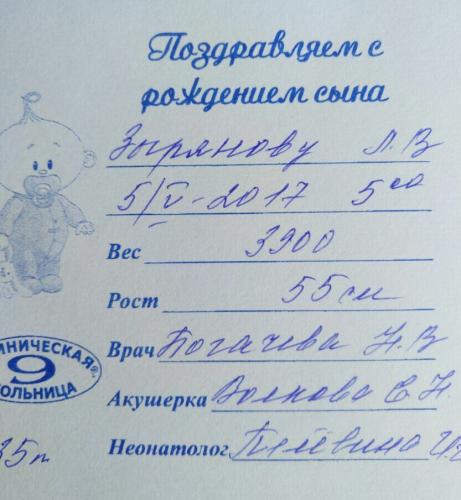 Поздравляем с
рождением сына
Зырянову Л.В
5/V-2017 5⁰⁰
Вес 3900
Рост 55см
Врач Богачева Н.В
Акушерка Волкова С.Н.
Неонатолог
НИЧЕСКАЯ
9
ОЛЬНИЦА